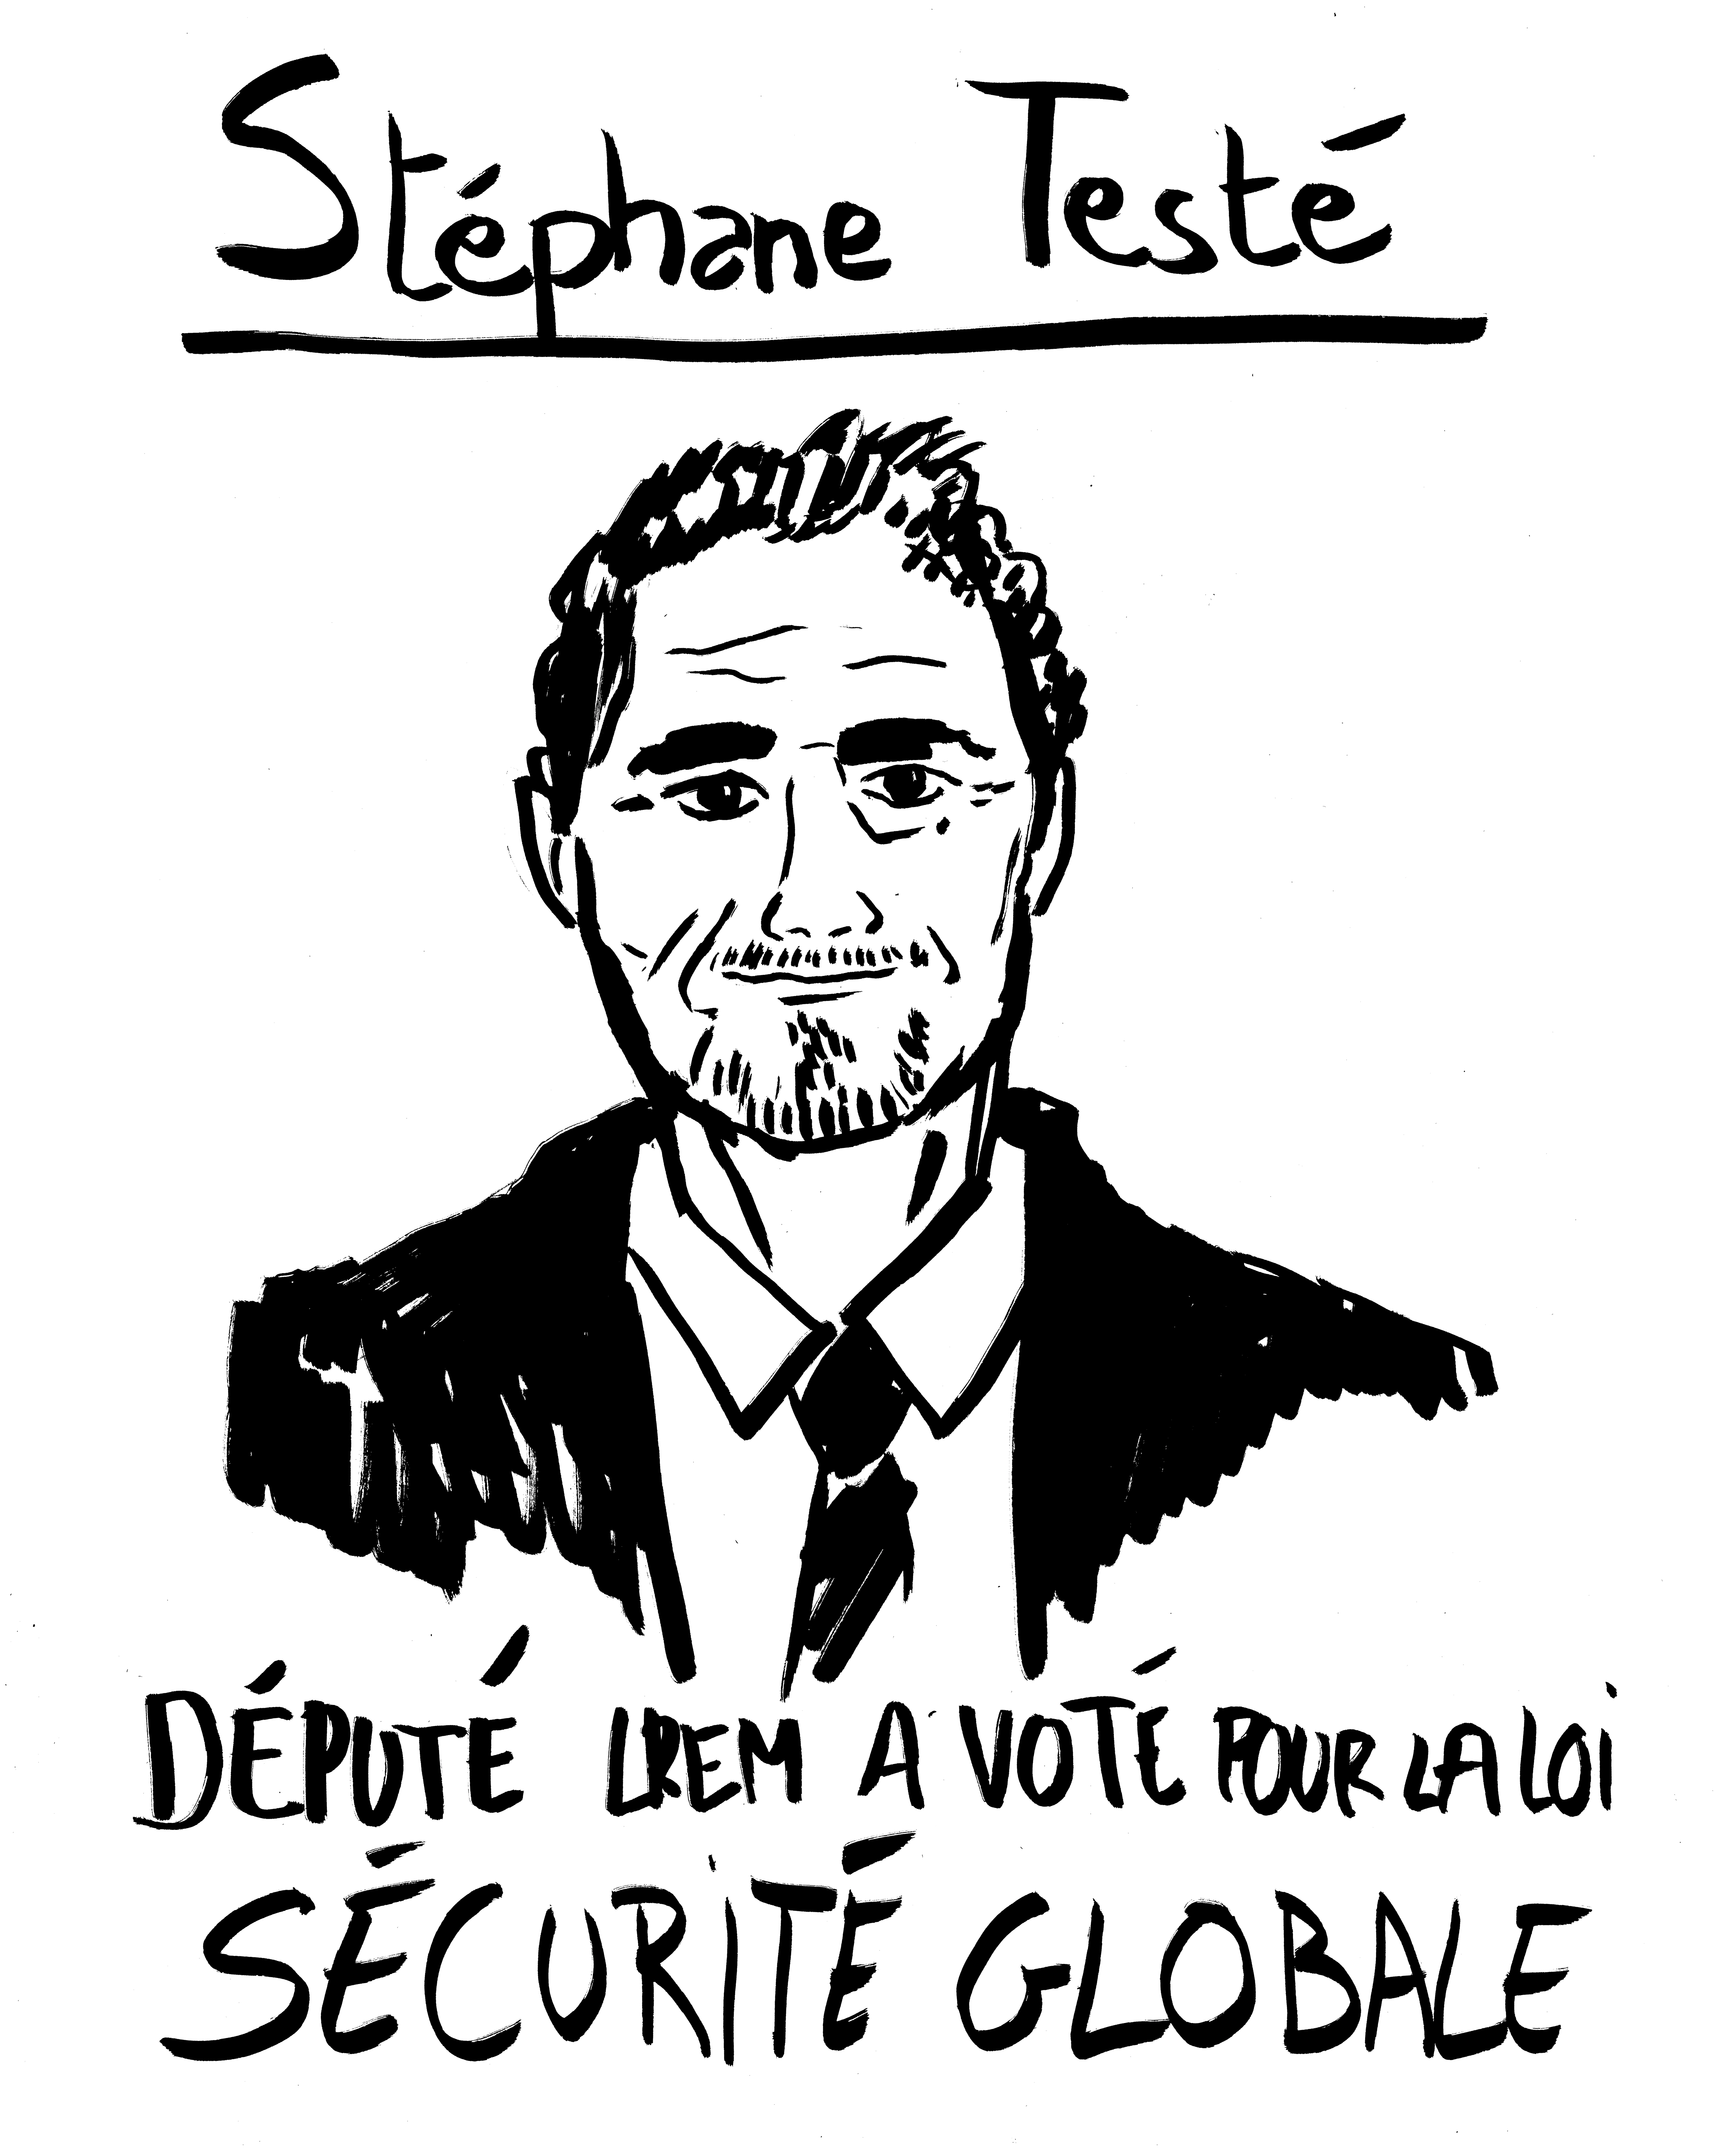 Stéphane Testé
DÉPUTÉ LREM A VOTÉ POUR LA LOI
SÉCURITÉ GLOBALE